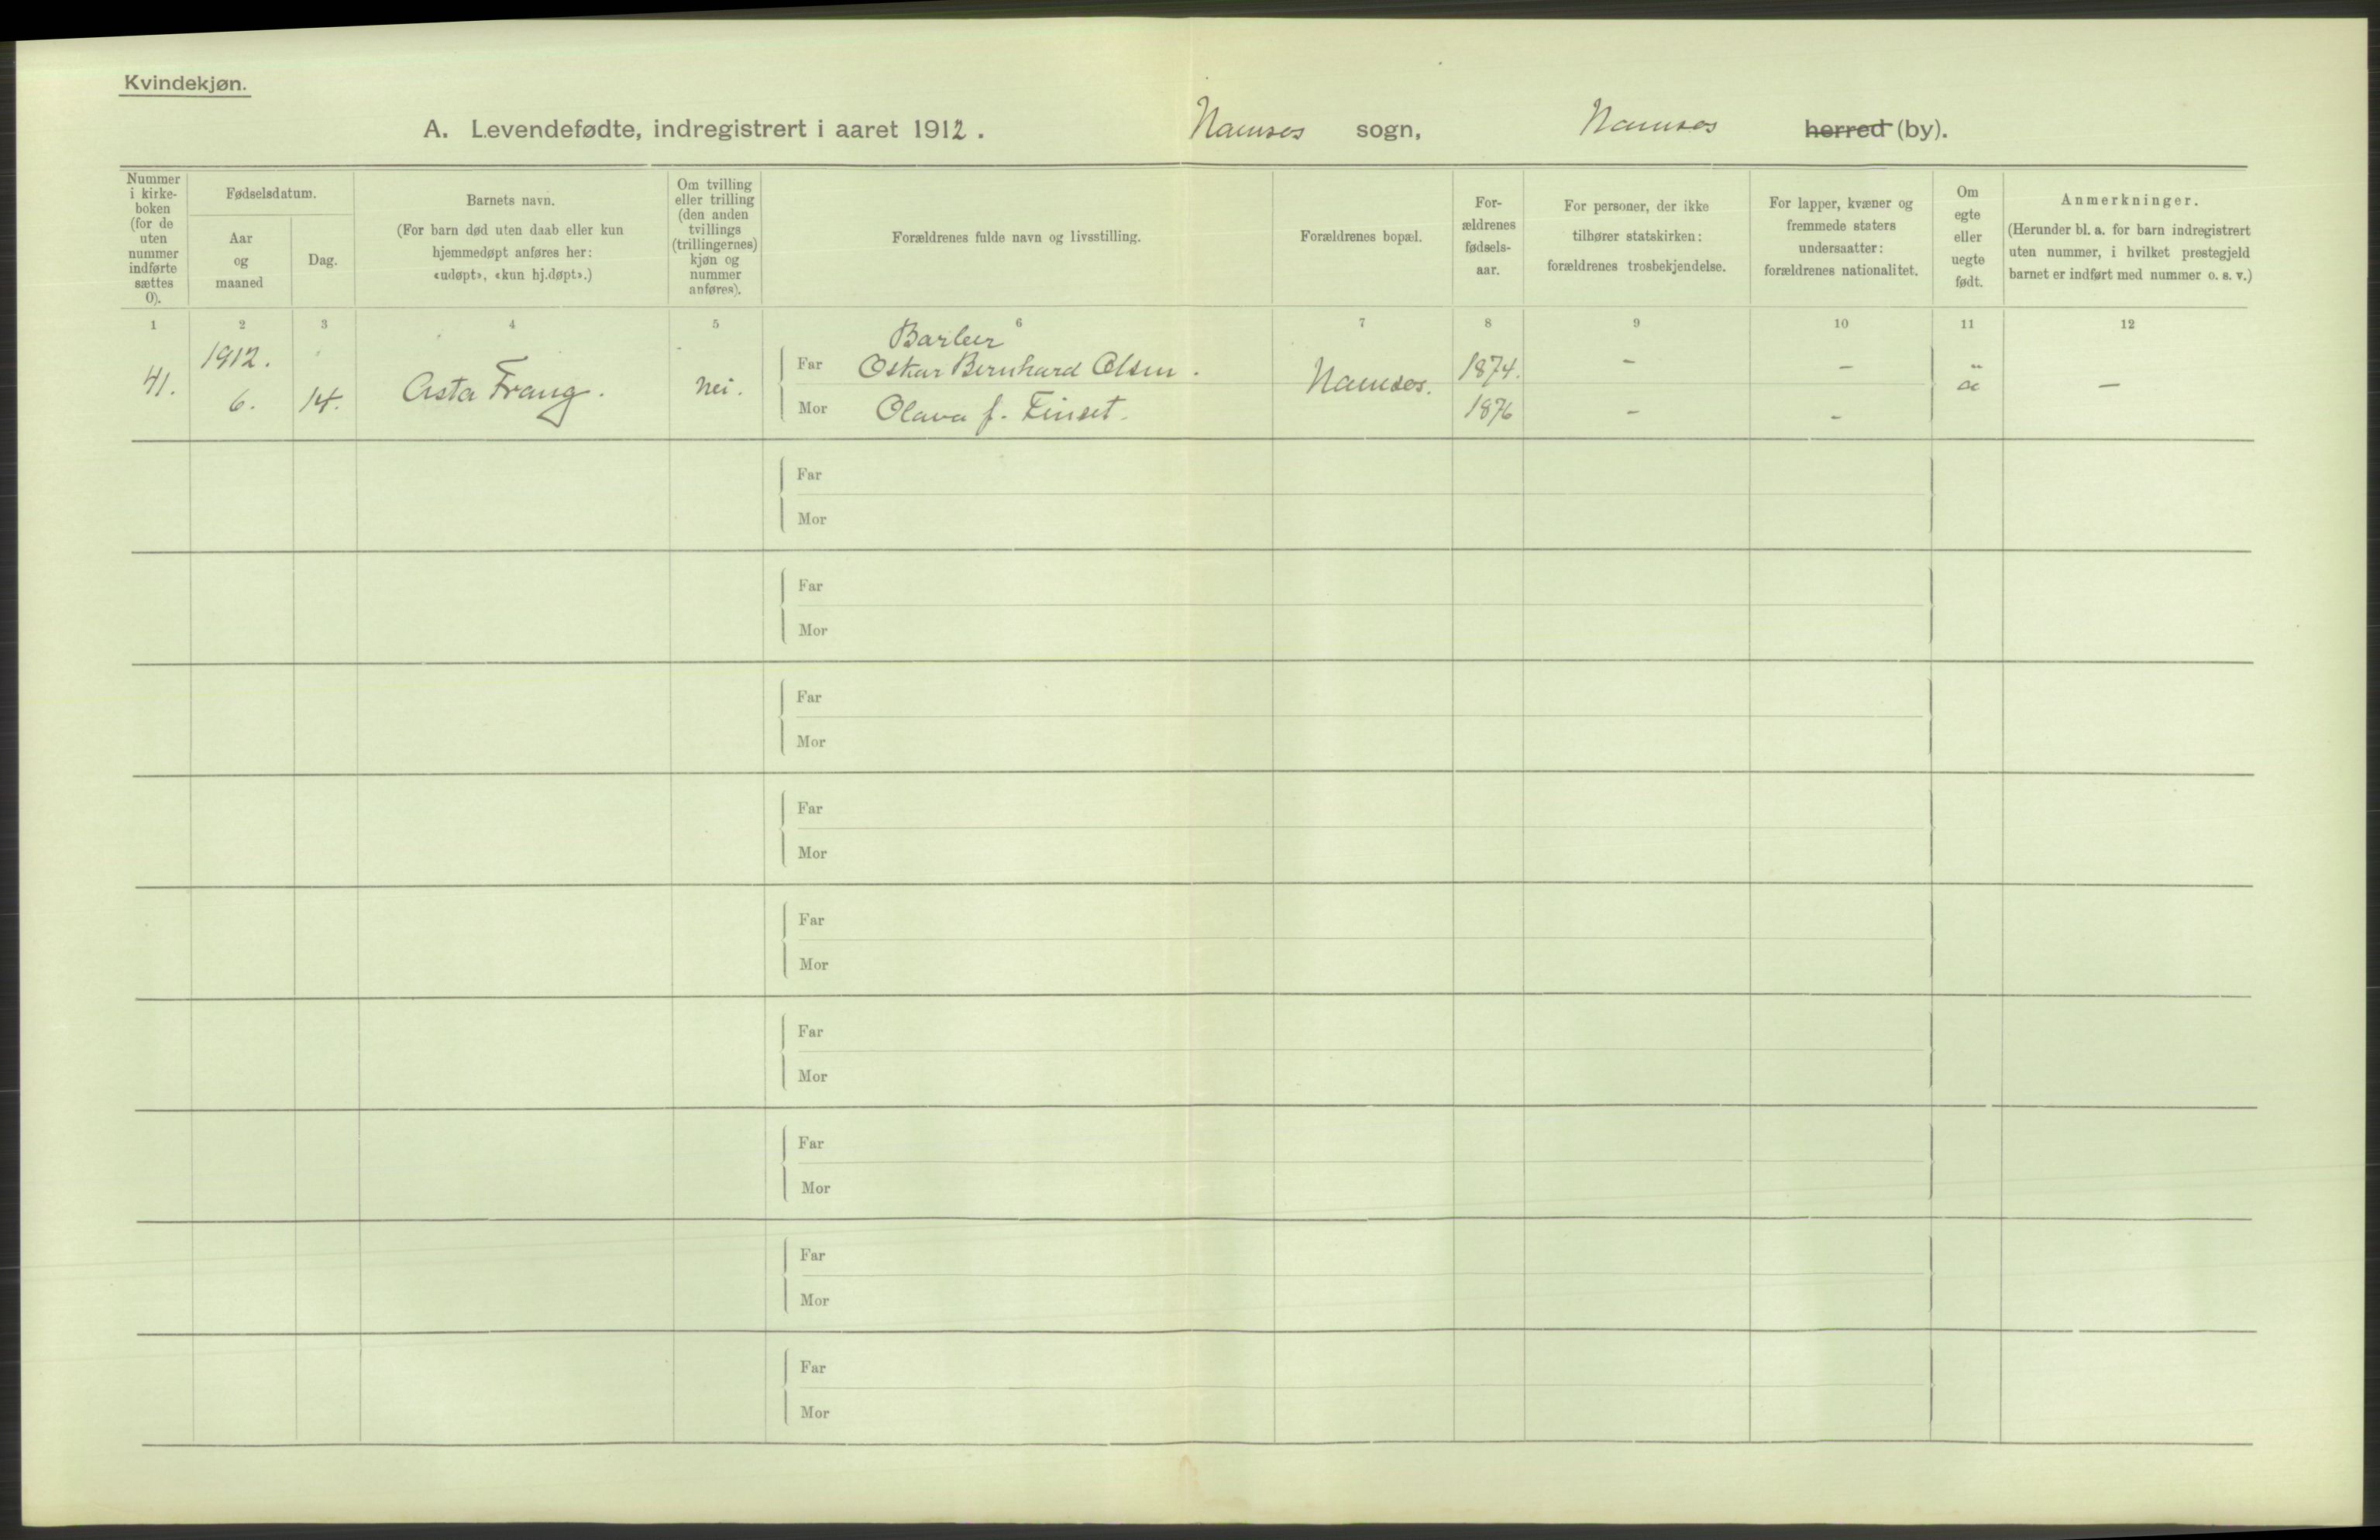 Kvindekjøn.
A. Levendefødte, indregistrert i aaret 1912. Namsos sogn, Namsos herred (by).
Nummer i kirke-boken (for de uten nummer indførte sættes 0).
Fødselsdatum.
Aar og maaned
Dag.
Barnets navn.
(For barn død uten daab eller kun hjemmedøpt anføres her: «udøpt», «kun hj.døpt».)
Om tvilling eller trilling (den anden tvillings (trillingernes) kjøn og nummer anføres).
Forældrenes fulde navn og livsstilling.
Forældrenes bopæl.
For-ældrenes fødsels-aar.
For personer, der ikke tilhører statskirken: forældrenes trosbekjendelse.
For lapper, kvæner og fremmede staters undersaatter: forældrenes nationalitet.
Om egte eller uegte født.
Anmerkninger.
(Herunder bl. a. for barn indregistrert uten nummer, i hvilket prestegjeld barnet er indført med nummer o. s. v.)
1 2 3 4 5 6 7 8 9 10 11 12
41. 1912. 6. 14. Asta Frang. Nei.
Barber
Far Oskar Bernhard Olsen. Namsos. 1874. - - æ -
Mor Olava f. Finset. 1876 - -
Far
Mor
Far
Mor
Far
Mor
Far
Mor
Far
Mor
Far
Mor
Far
Mor
Far
Mor
Far
Mor